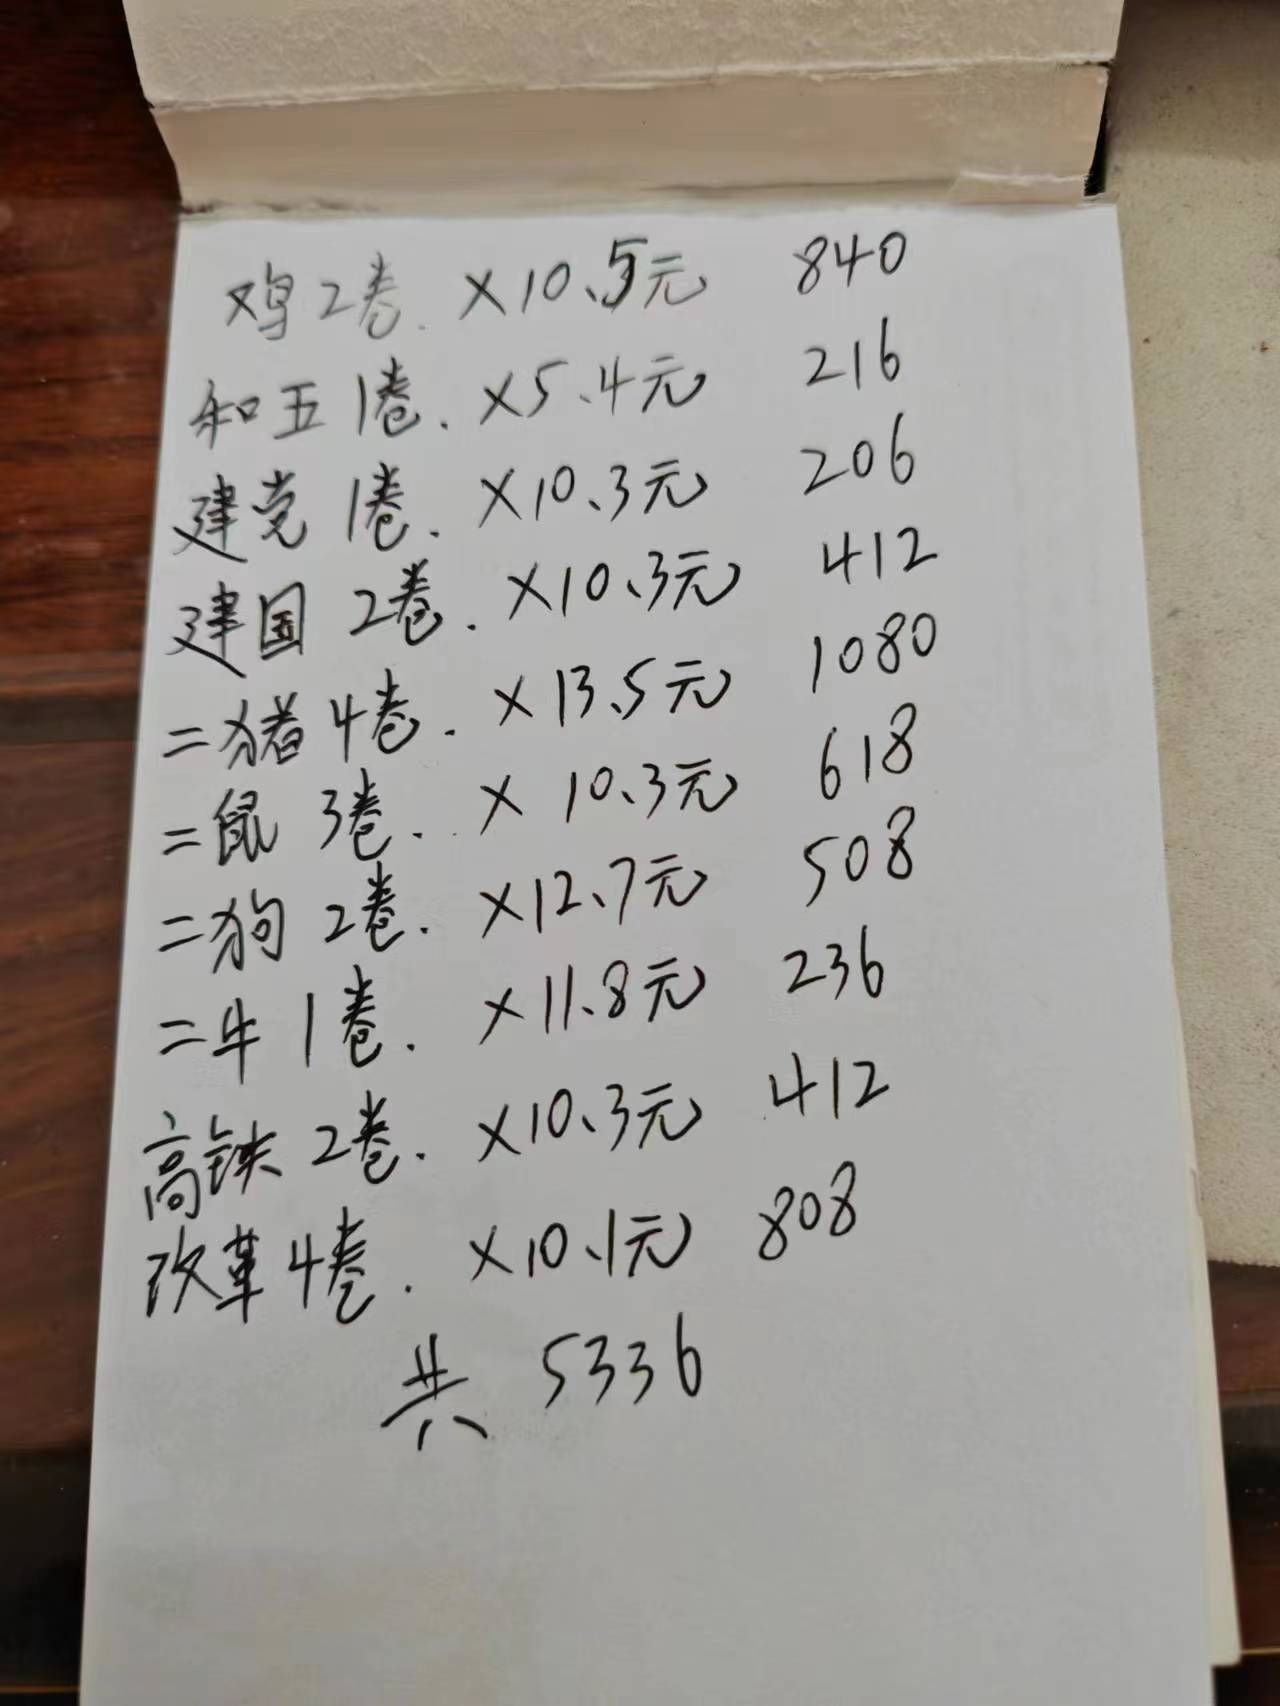 鸡2卷. ×10.5元 840
和五1卷. ×5.4元 216
建党1卷. ×10.3元 206
建国2卷. ×10.3元 412
二猪4卷. ×13.5元 1080
二鼠3卷. ×10.3元 618
二狗2卷. ×12.7元 508
二牛1卷. ×11.8元 236
高铁2卷. ×10.3元 412
改革4卷. ×10.1元 808
共 5336